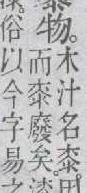 物。木汁名桼。用
俗以今字易之
而桼廢矣。漆